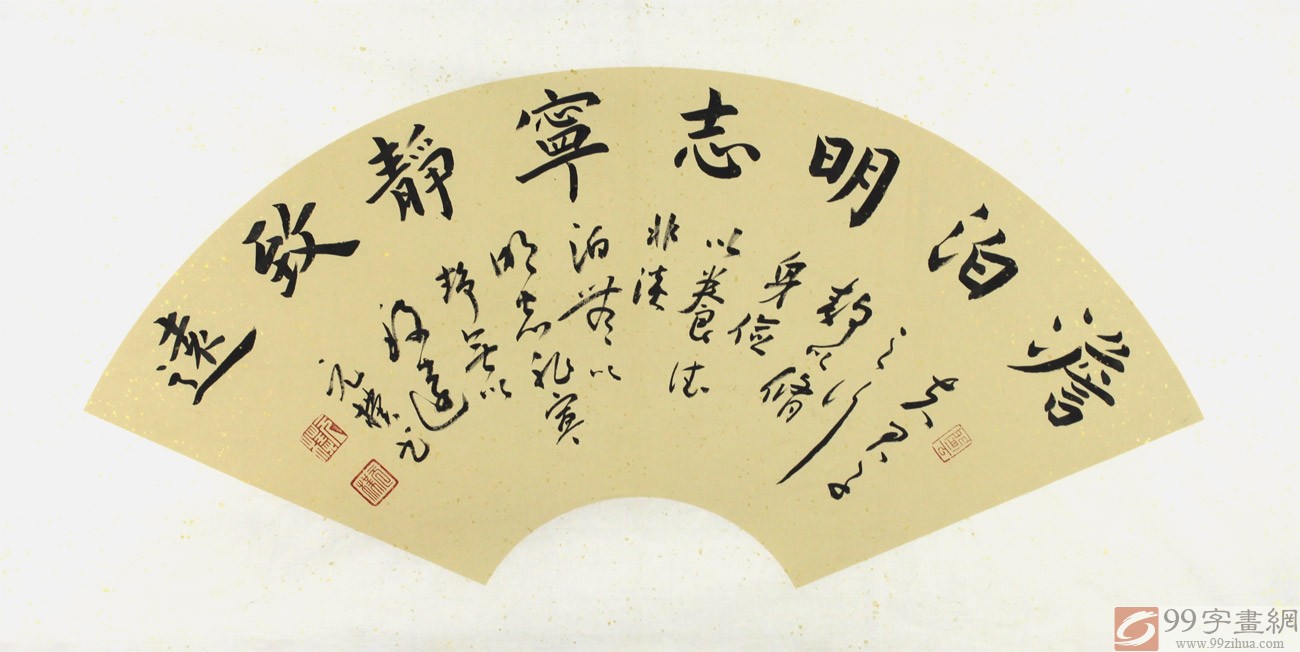 澹泊明志寧静致遠
夫君子
之行
静以修
身儉
以養德
非淡
泊無以
明志非寧
静無以
致遠
99字畫網
www.99zihua.com